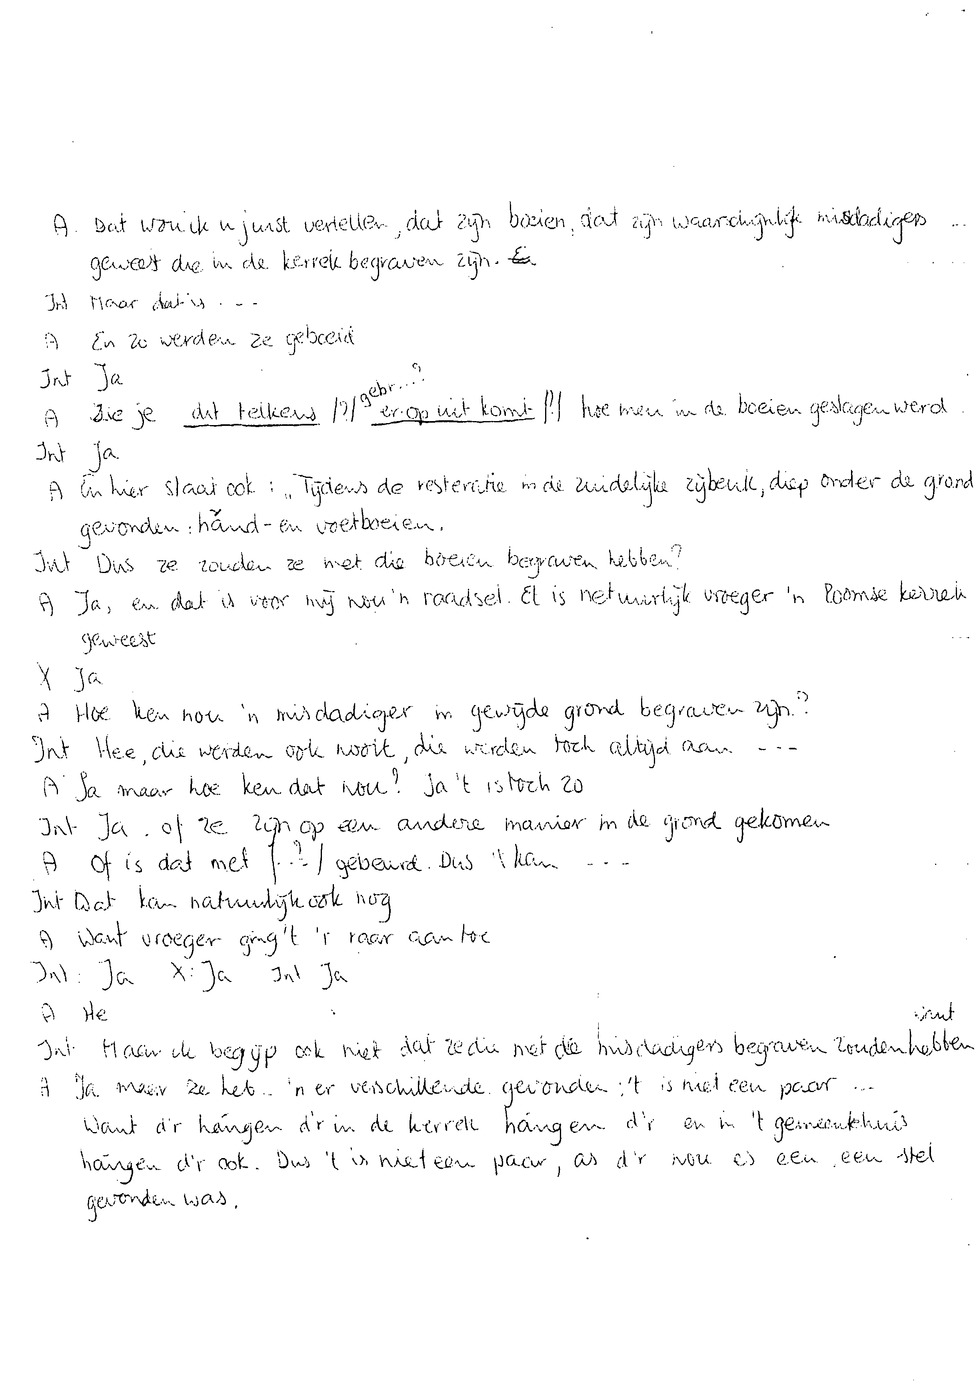 A. Dat wou ik u juist vertellen, dat zijn boeien, dat zijn waarschijnlijk misdadigers ...
geweest die in de kerrek begraven zijn.
Int Maar dat is . - -
A En zo werden ze geboeid
Int Ja
gebr...?
A Zie je dit telkens |?| er op uit komt |?| hoe men in de boeien geslagen werd.
Int Ja
A En hier staat ook : „Tijdens de resteratie in de zuidelijke zijbeuk, diep onder de grond
gevonden : hand- en voetboeien.
Int Dus ze zouden ze met die boeien begraven hebben?
A Ja, en dat is voor mij nou 'n raadsel. Et is netuurlijk vroeger 'n Roomse kerrek
geweest
X Ja
A Hoe ken nou 'n misdadiger in gewijde grond begraven zijn?
Int Hee, die werden ook nooit, die werden toch altijd aan - - -
A Ja maar hoe ken dat nou? Ja 't is toch zo
Int Ja. of ze zijn op een andere manier in de grond gekomen
A Of is dat met |..?| gebeurd. Dus 't kan - - -
Int Dat kan natuurlijk ook nog
A Want vroeger ging 't 'r raar aan toe
Int: Ja X: Ja Int Ja
A He
want
Int Maar ik begrijp ook niet dat ze die met die misdadigers begraven zouden hebben
A Ja maar ze heb.. 'n er verschillende gevonden ; 't is niet een paar ...
Want d'r hángen d'r in de kerrek hángen d'r en in 't gemeentehuis
hángen d'r ook. Dus 't is niet een paar, as d'r nou es een, een stel
gevonden was.